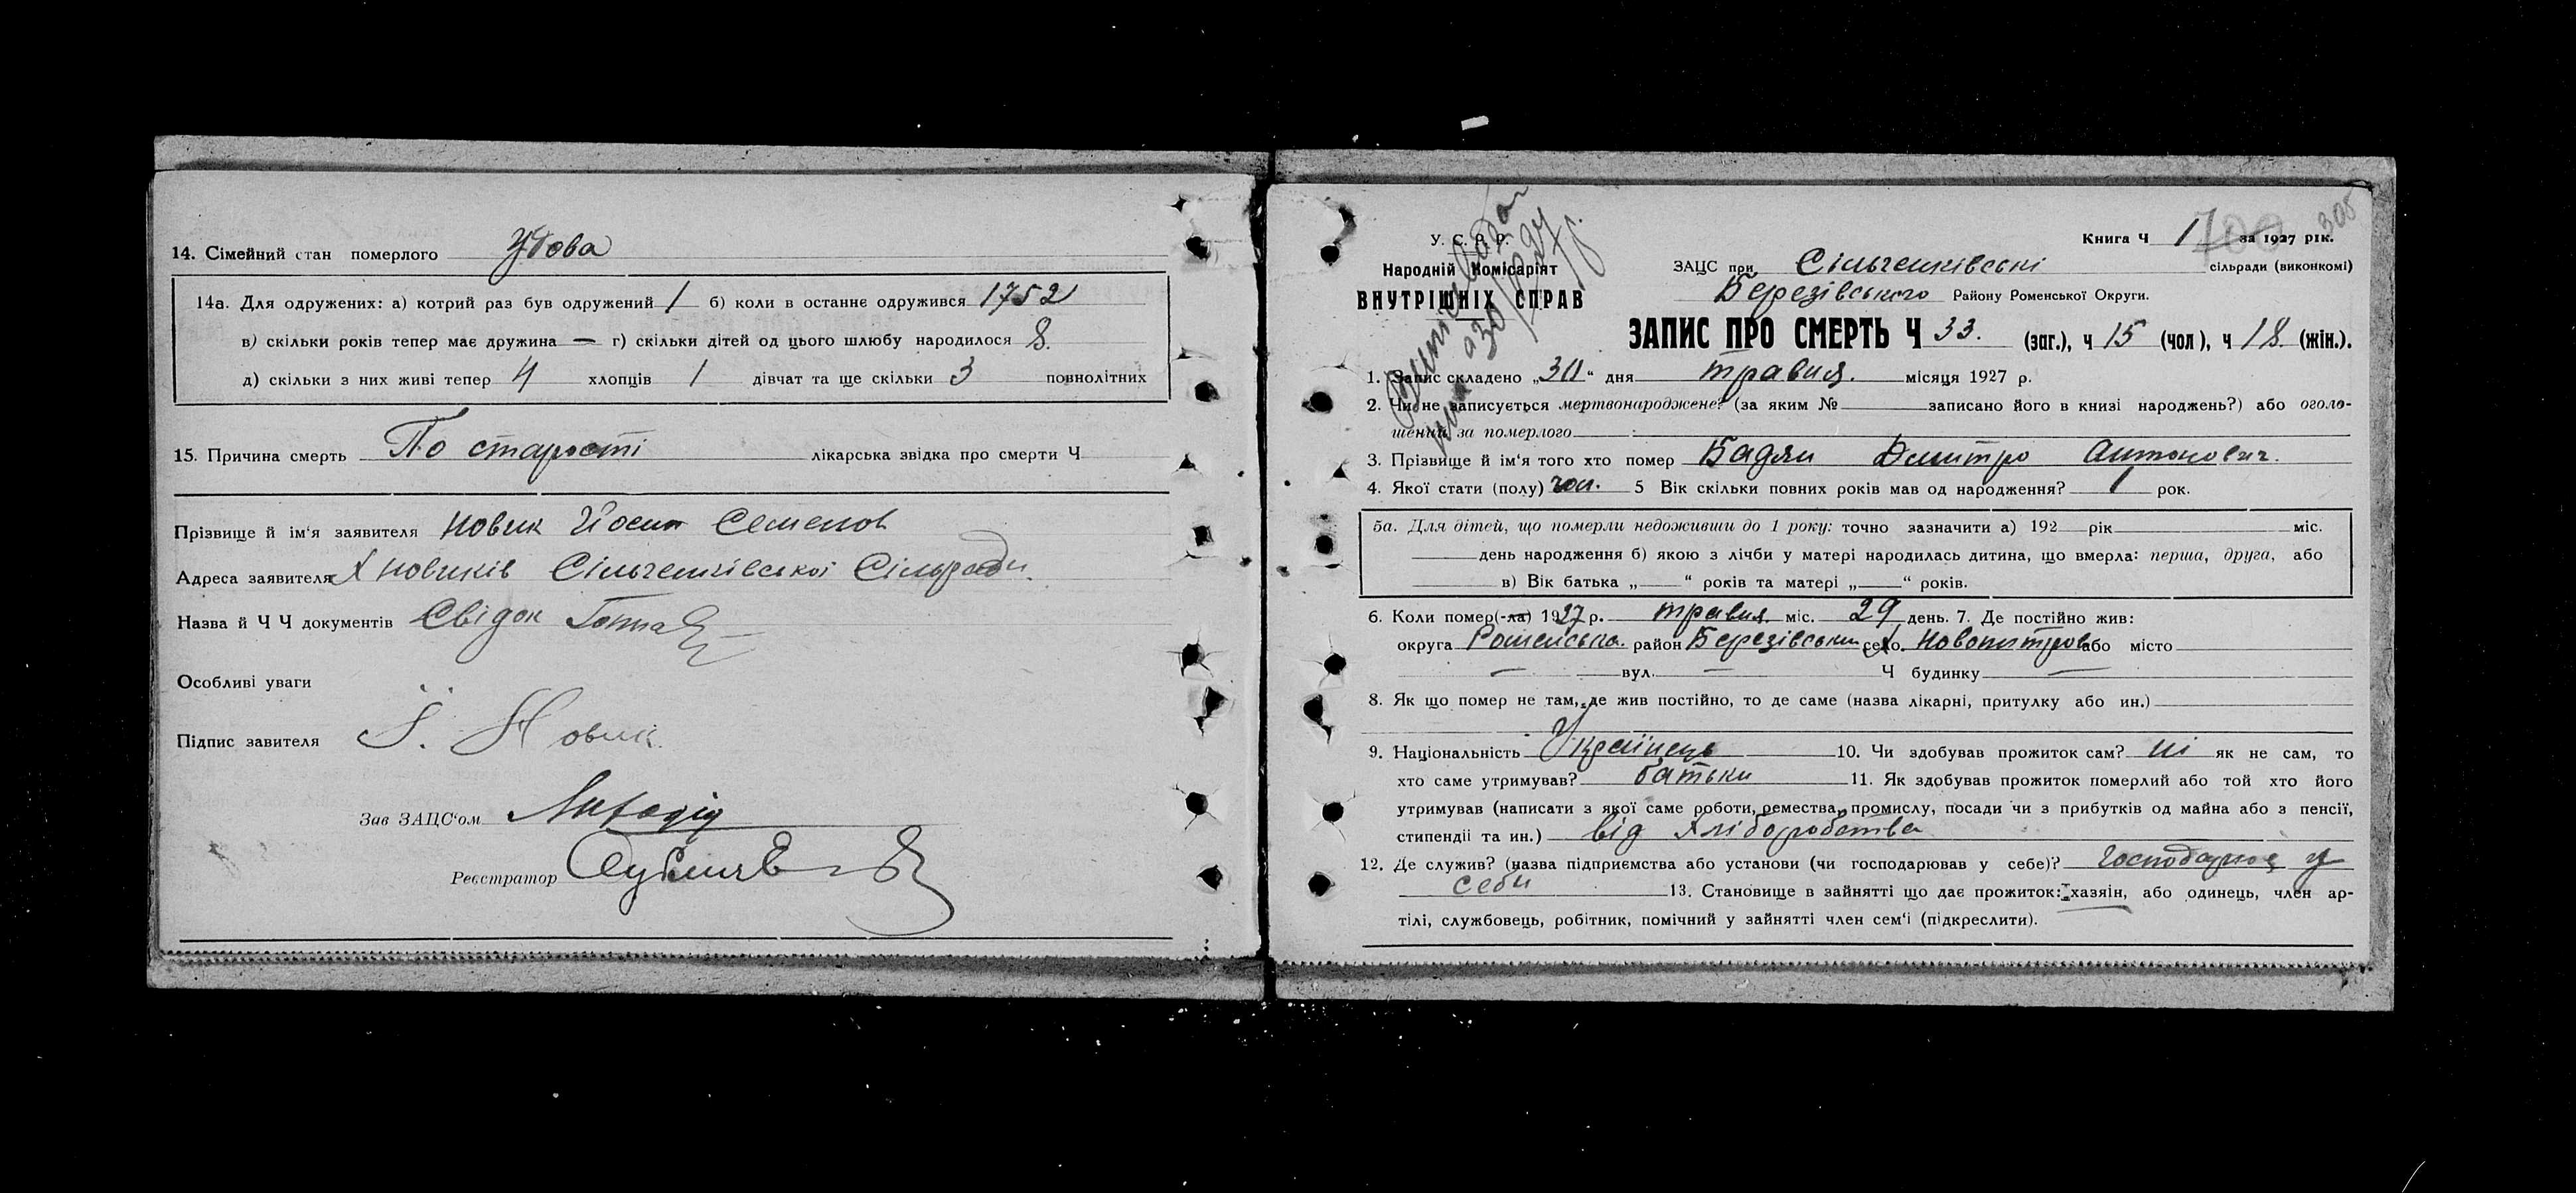 14. Сімейний стан померлого Удова
14а. Для одружених: а) котрий раз був одружений 1 б) коли в останнє одружився 1752
в) скільки років тепер має дружина — г) скільки дітей од цього шлюбу народилося 8.
д) скільки з них живі тепер 4 хлопців 1 дівчат та ще скільки 3 повнолітних
15. Причина смерть По старості лікарська звідка про смерти Ч
Прізвище й ім'я заявителя Новик Йосип Семенов
Адреса заявителя Х Новиків Сільченківської Сільради.
Назва й Ч Ч документів Свідок
Особливі уваги
Підпис завителя Й. Новик
Зав ЗАЦС'ом
Реєстратор
305
У. С. Р. Р.
Народній Комісаріят
ВНУТРІШНІХ СПРАВ
Книга Ч 1 за 1927 рік.
ЗАЦС при Сільченківські сільради (виконкомі)
Березівського Району Роменської Округи.
ЗАПИС ПРО СМЕРТЬ Ч 33. (заг.), ч 15 (чол), ч 18 (жін.).
1. Запис складено „30“ дня травня. місяця 1927 р.
2. Чи не записується мертвонароджене? (за яким № записано його в книзі народжень?) або оголо-
шений за померлого
3. Прізвище й ім'я того хто помер Бадян Дмитро Антонович.
4. Якої стати (полу) чол. 5 Вік скільки повних років мав од народження? 1 рок.
5а. Для дітей, що померли недоживши до 1 року: точно зазначити а) 192 рік міс.
день народження б) якою з лічби у матері народилась дитина, що вмерла: перша, друга, або
в) Вік батька „ “ років та матері „ “ років.
6. Коли помер(-ла) 1927 р. травня міс. 29 день. 7. Де постійно жив:
округа Роменська. район Березівськи село. Новопитров або місто
— вул. — Ч будинку —
8. Як що помер не там, де жив постійно, то де саме (назва лікарні, притулку або ин.)
9. Національність Українець 10. Чи здобував прожиток сам? ні як не сам, то
хто саме утримував? батьки 11. Як здобував прожиток померлий або той хто його
утримував (написати з якої саме роботи, ремества, промислу, посади чи з прибутків од майна або з пенсії,
стипендії та ин.) від хліборобства
12. Де служив? (назва підприємства або установи (чи господарював у себе)? господарює у
себи 13. Становище в зайнятті що дає прожиток: хазяін, або одинець, член ар-
тілі, службовець, робітник, помічний у зайнятті член сем'ї (підкреслити).